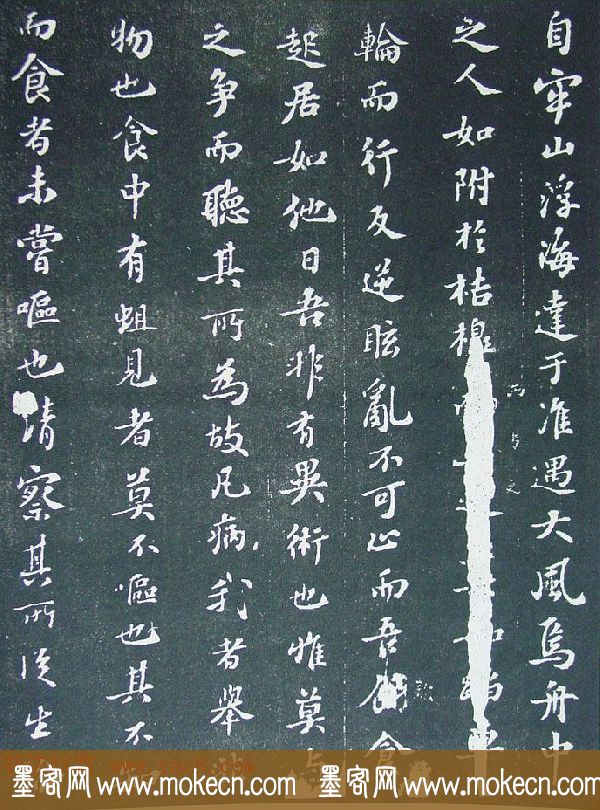 自牢山浮海達于淮遇大風焉舟中
之人如附於桔槔
輪而行反逆眩亂不可止而吾飲食
起居如他日吾非有異術也惟莫
之爭而聽其所為故凡病我者舉
物也食中有蛆見者莫不嘔也其不
而食者未嘗嘔也請察其所從生
墨客网 www.mokecn.com 墨客网 www.mokecn.com